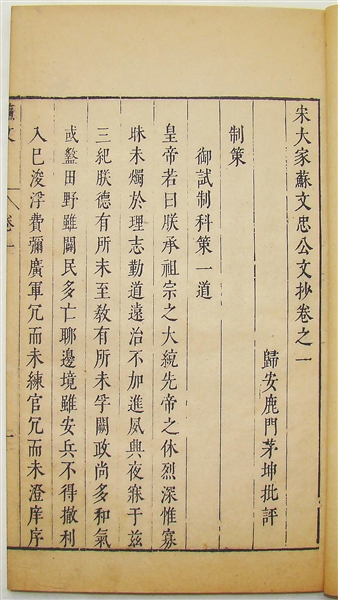 宋大家蘇文忠公文抄卷之一
歸安鹿門茅坤批評
制策
御試制科策一道
皇帝若曰朕承祖宗之大統先帝之休烈深惟寡
昧未燭於理志勤道遠治不加進夙興夜寐于茲
三紀朕德有所未至敎有所未孚闕政尚多和氣
或盭田野雖闢民多亡聊邊境雖安兵不得撤利
入已浚浮費彌廣軍冗而未練官冗而未澄庠序
蘇文
卷一
一